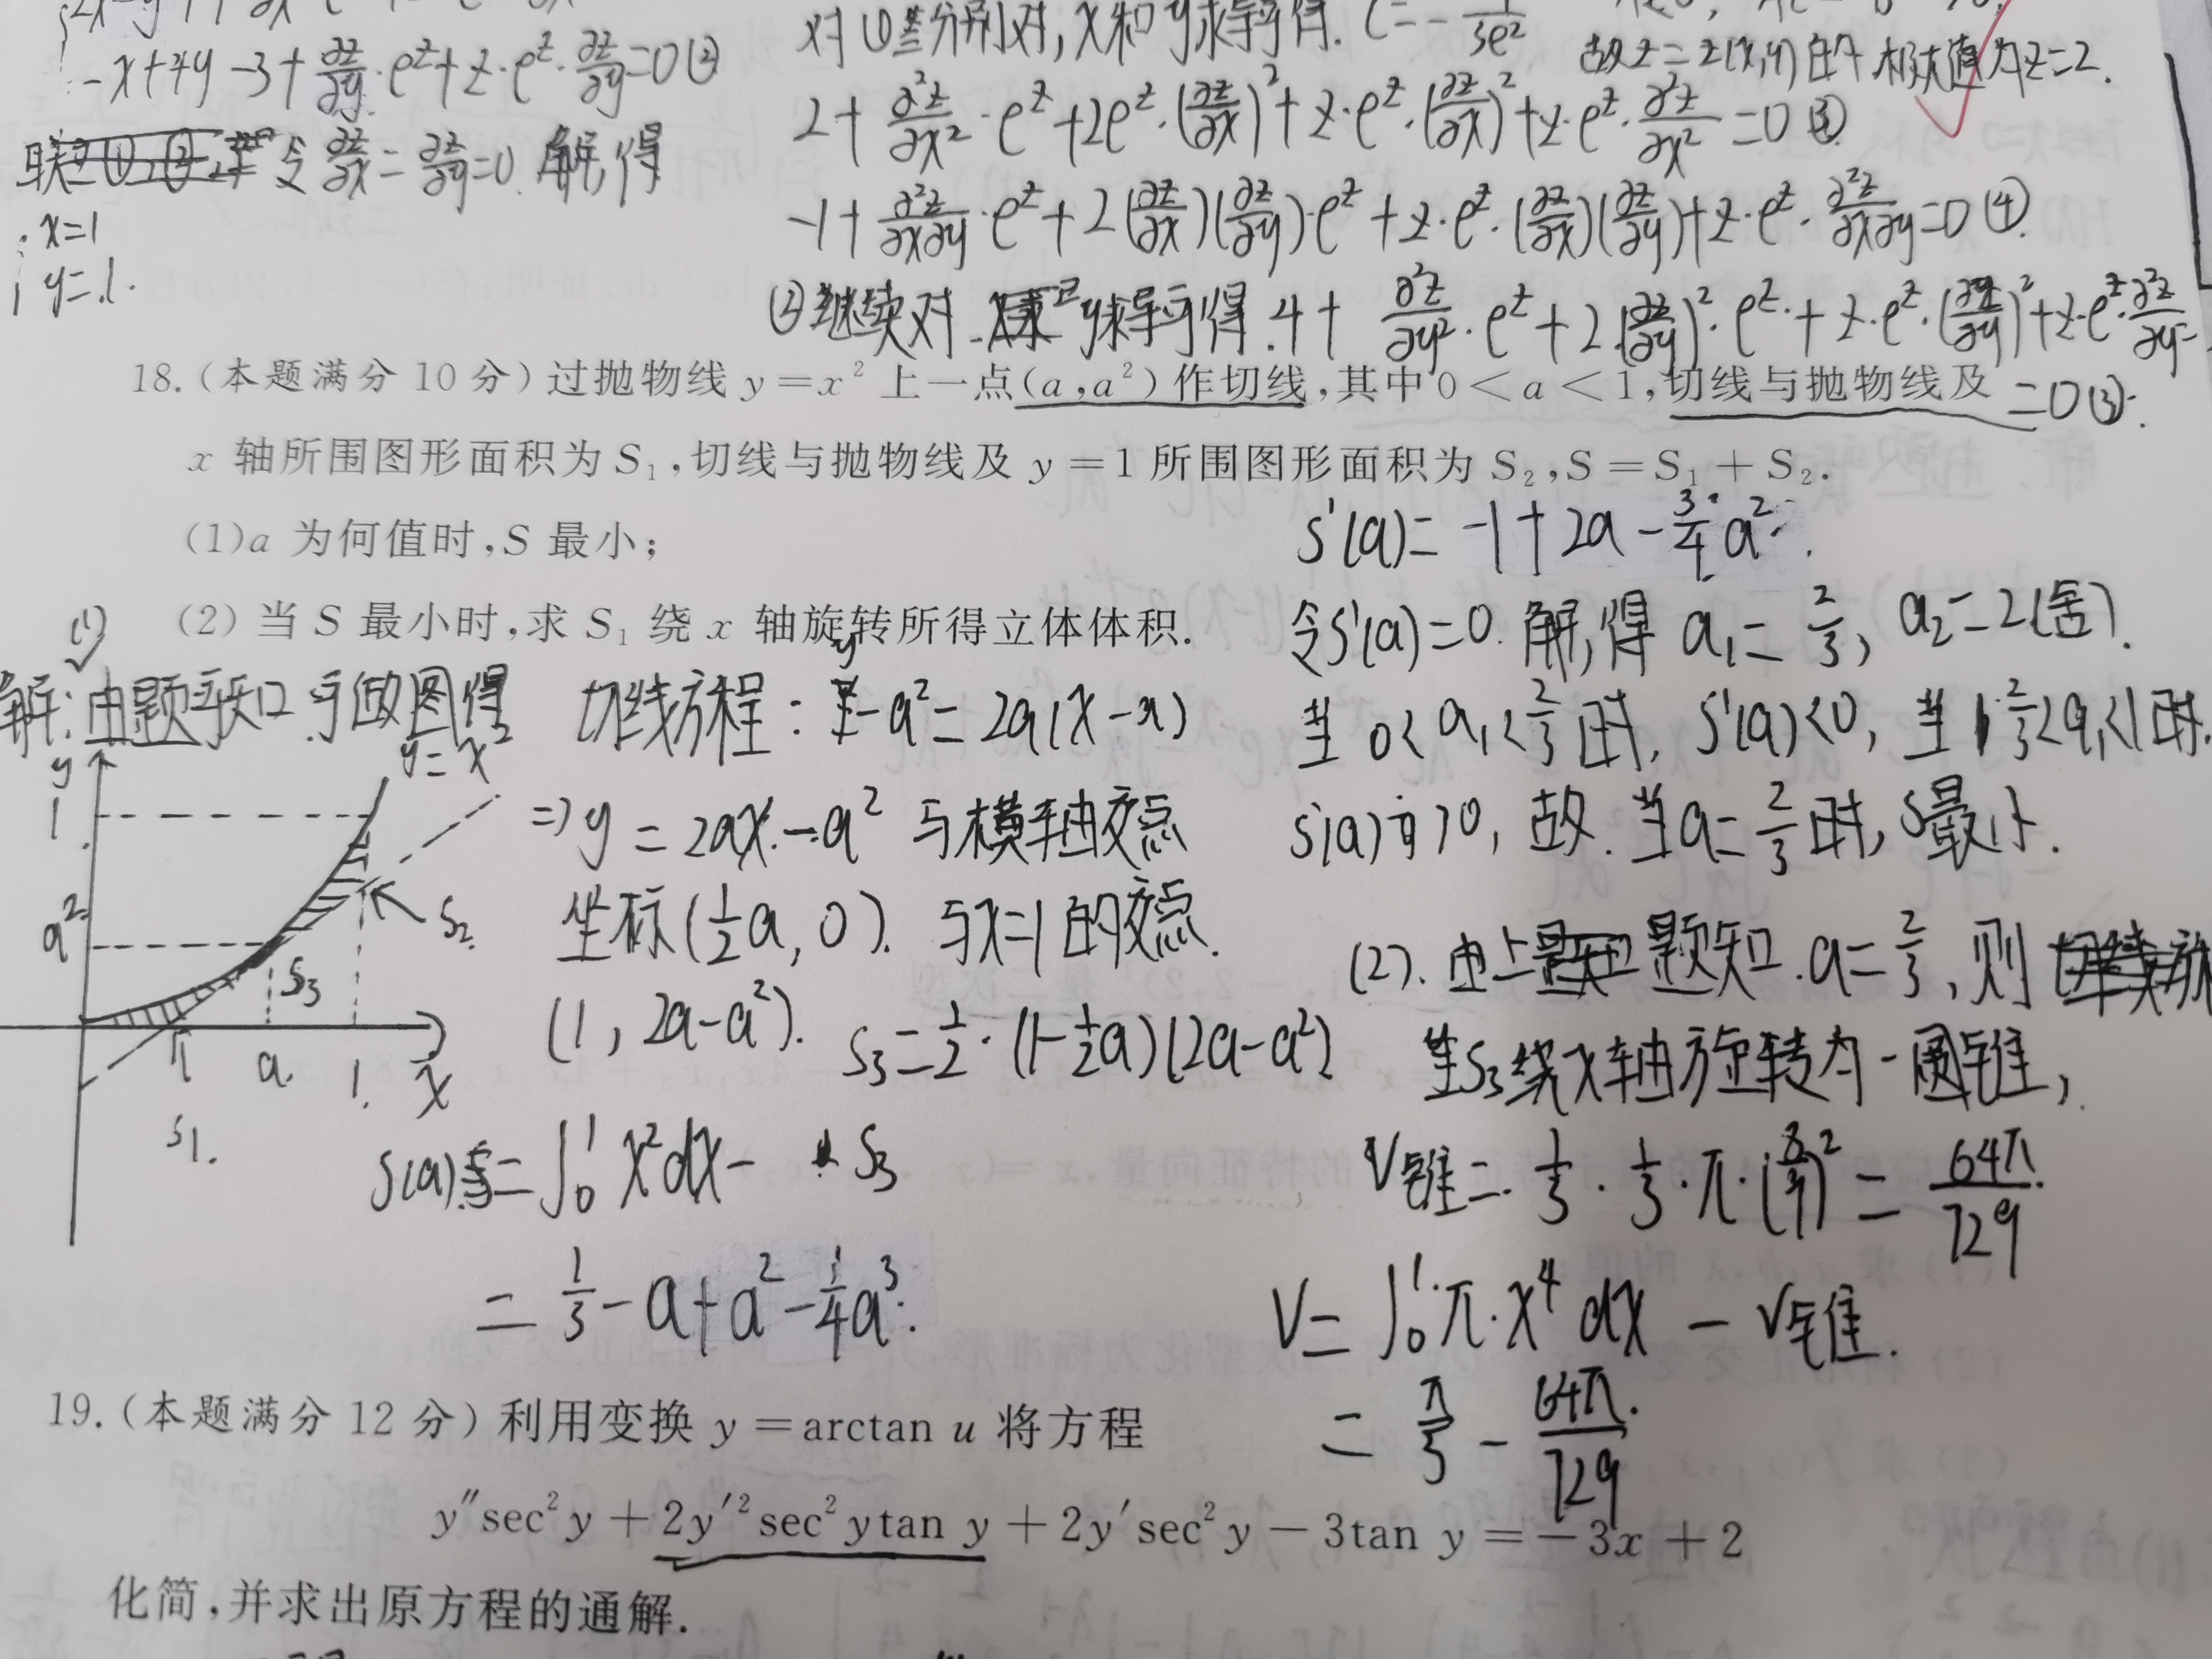 -x+4y-3+∂z/∂y·e^z+z·e^z·∂z/∂y=0②
令 ∂z/∂x=∂z/∂y=0. 解得
x=1
y=1.
对①差分别对,x和y求导可得.
故z=z(x,y)的极大值为z=2.
2+∂²z/∂x²·e^z+2e^z·(∂z/∂x)²+z·e^z·(∂z/∂x)²+z·e^z·∂²z/∂x²=0③
-1+∂²z/∂x∂y·e^z+2(∂z/∂x)(∂z/∂y)·e^z+z·e^z·(∂z/∂x)(∂z/∂y)+z·e^z·∂²z/∂x∂y=0④.
②继续对y求导可得.4+∂²z/∂y²·e^z+2·(∂z/∂y)²·e^z·+z·e^z·(∂z/∂y)²+z·e^z·∂²z/∂y²
=0⑤.
18.(本题满分 10 分)过抛物线 y=x² 上一点(a,a²)作切线,其中 0<a<1,切线与抛物线及
x 轴所围图形面积为 S₁,切线与抛物线及 y=1 所围图形面积为 S₂,S=S₁+S₂.
(1)a 为何值时,S 最小;
(2) 当 S 最小时,求 S₁ 绕 x 轴旋转所得立体体积.
(1)
解:由题可知.可做图得
y
y=x²
1
a²
S₂
S₃
a
1
x
S₁.
切线方程:y-a²=2a(x-a)
⇒y=2ax-a² 与横轴交点
坐标(½a,0). 与x=1的交点.
(1,2a-a²). S₃=½·(1-½a)(2a-a²)
S(a)=∫₀¹x²dx- S₃
=1/3-a+a²-1/4a³.
S'(a)=-1+2a-3/4a².
令S'(a)=0. 解得 a₁=2/3, a₂=2(舍).
当 0<a₁<2/3时, S'(a)<0, 当 2/3<a₁<1时.
S'(a)>0, 故.当a=2/3时, S最小.
(2). 由上题知.a=2/3,则
S₃绕x轴旋转为一圆锥,
V锥=1/3·1/3·π·(8/9)²=64π/729
V=∫₀¹π·x⁴dx-V锥.
=π/5-64π/729
19.(本题满分 12 分)利用变换 y=arctan u 将方程
y″sec²y+2y′²sec²ytan y+2y′sec²y-3tan y=-3x+2
化简,并求出原方程的通解.